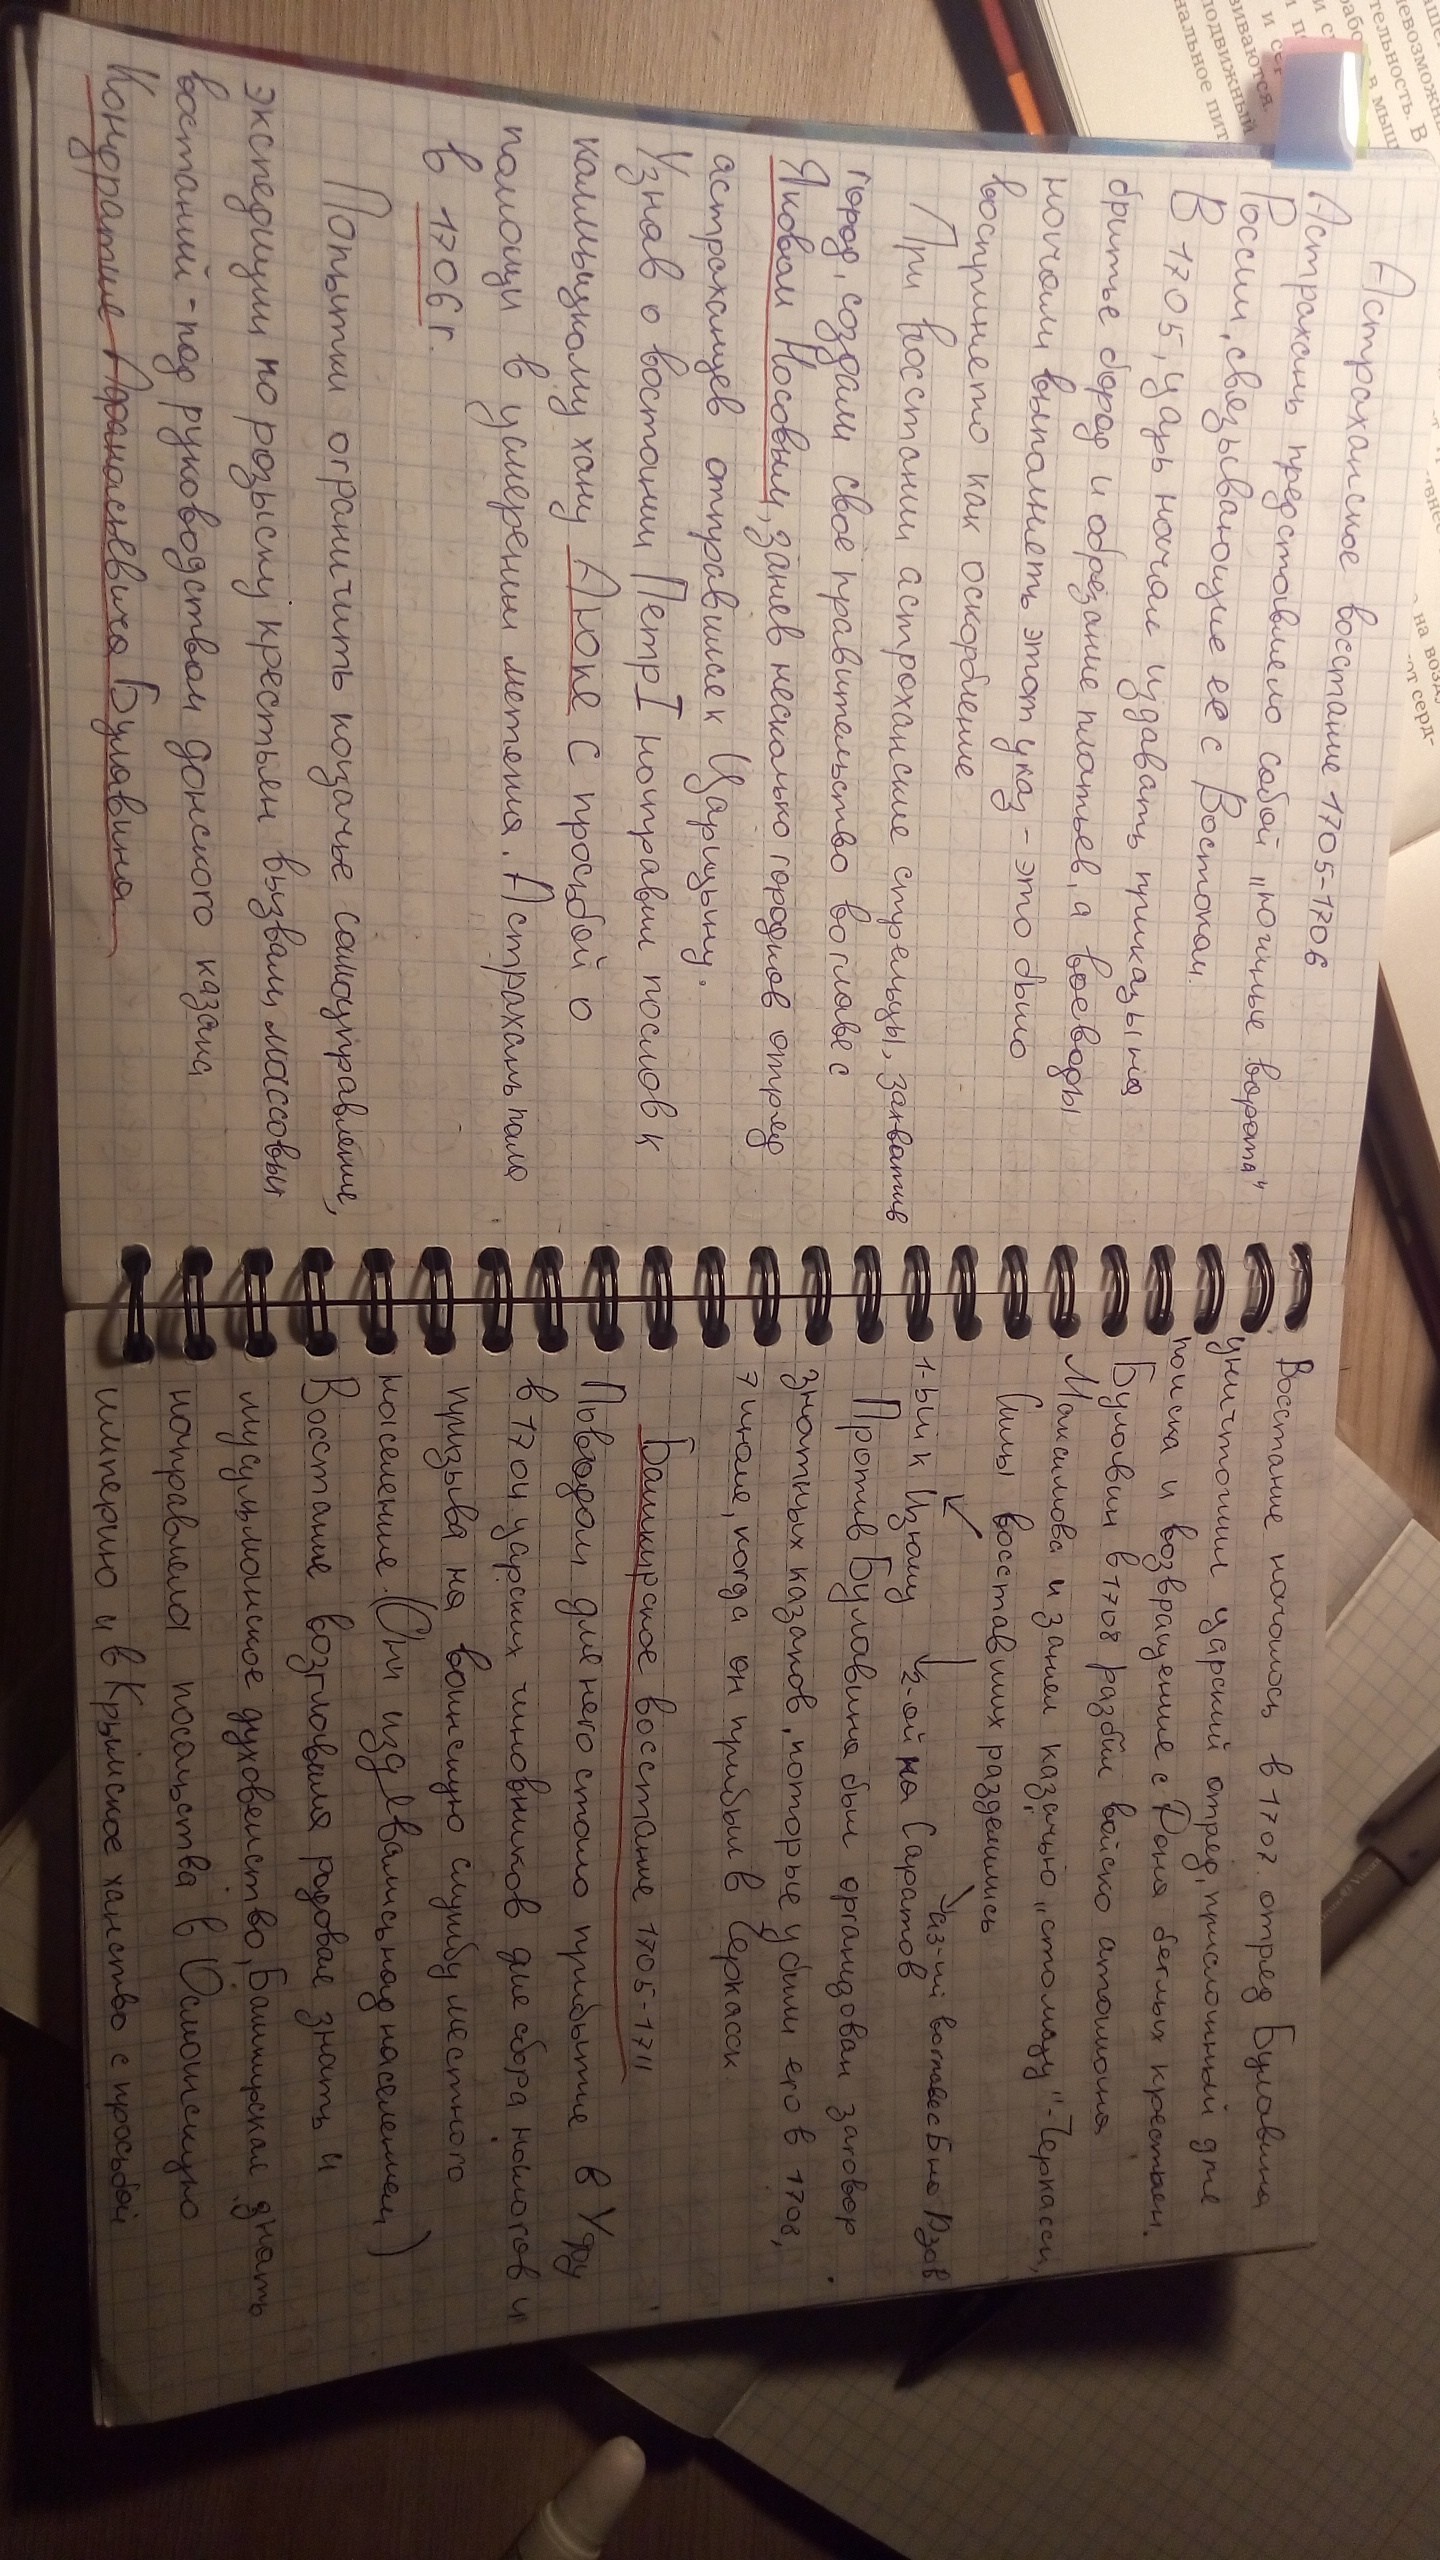 Астраханское восстание 1705-1706
Астрахань представляло собой „южные ворота"
России, связывающие её с Востоком.
В 1705, царь начал издавать приказы на
бритьё бород и обрезание платьев, а воеводы
начали выполнять этот указ - это было
воспринято как оскорбление
При восстании астраханские стрельцы, захватив
город, создали своё правительство во главе с
Яковом Носовым, заняв несколько городков отряд
астраханцев отправился к Царицыну.
Узнав о востании Петр I направил послов к
калмыцкому хану Аюке с просьбой о
помощи в усмерении мятежа. Астрахань пала
в 1706 г.
Попытки ограничить козачье самоуправление,
экспедиции по розыску крестьян вызвали массовых
востаний - под руководством донского казака
Кондратие Афанасьевича Булавина
Восстание началось в 1707. отряд Булавина
уничтожил царский отряд, присланный для
поиска и возвращение с Дона беглых крестьян.
Булавин в 1708 разбил войско атамана
Максимова и занял казачью „столицу" - Черкасск,
Силы восставших разделились
1-ый к Изюму 2-ой на Саратов
Против Булавина был организован заговор
знатных казаков, которые убили его в 1708,
7 июля, когда он прибыл в Черкасск
Башкирское восстание 1705-1711
Поводом для него стало прибытие в Уфу
в 1704 царских чиновников для сбора налогов и
призыва на воинскую службу местного
население. (Они издевались над населением)
Востание возглавила родовая знать и
мусульманское духовенство, Башкирская знать
направляла посольства в Османскую
империю и в Крымское ханство с просьбой
на возд
от серд-
в мыш
подвижный